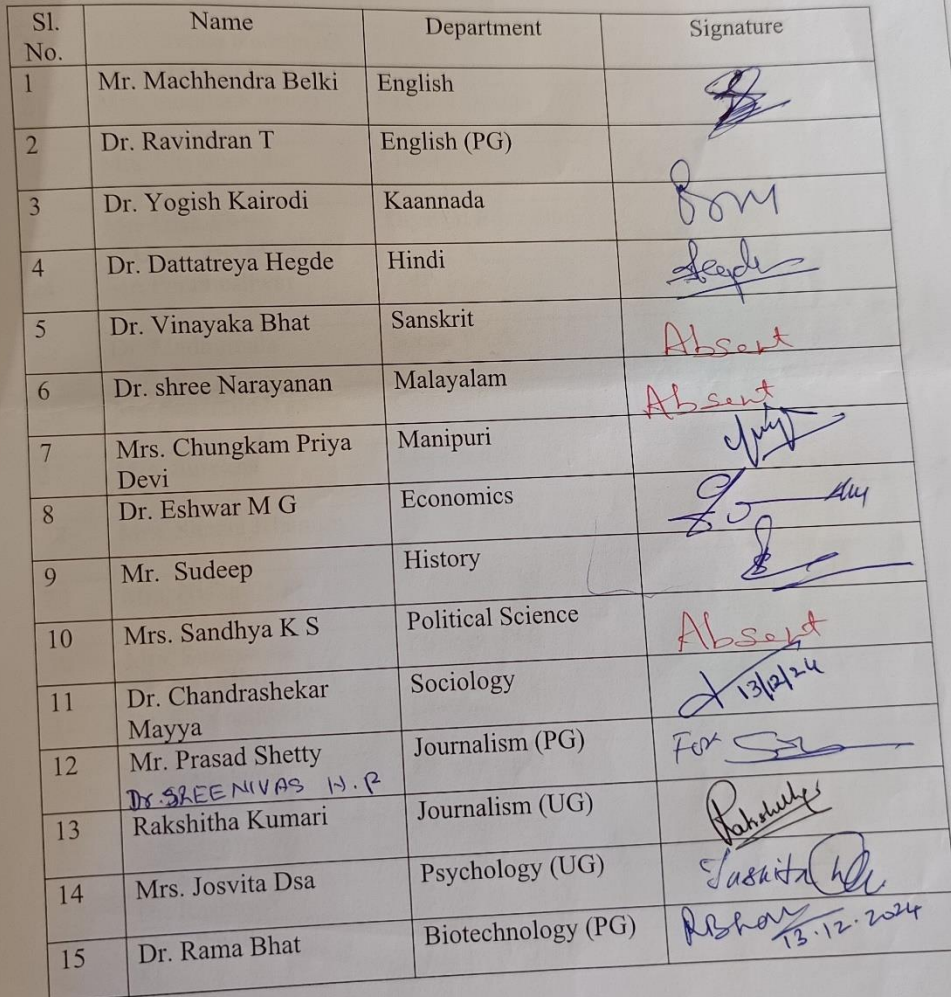 Sl. No. Name Department Signature
1 Mr. Machhendra Belki English
2 Dr. Ravindran T English (PG)
3 Dr. Yogish Kairodi Kaannada
4 Dr. Dattatreya Hegde Hindi
5 Dr. Vinayaka Bhat Sanskrit Absent
6 Dr. shree Narayanan Malayalam Absent
7 Mrs. Chungkam Priya Devi Manipuri
8 Dr. Eshwar M G Economics
9 Mr. Sudeep History
10 Mrs. Sandhya K S Political Science Absent
11 Dr. Chandrashekar Mayya Sociology 13/12/24
12 Mr. Prasad Shetty Journalism (PG) For
Dr. SREENIVAS H.P
13 Rakshitha Kumari Journalism (UG)
14 Mrs. Josvita Dsa Psychology (UG)
15 Dr. Rama Bhat Biotechnology (PG) 13.12.2024